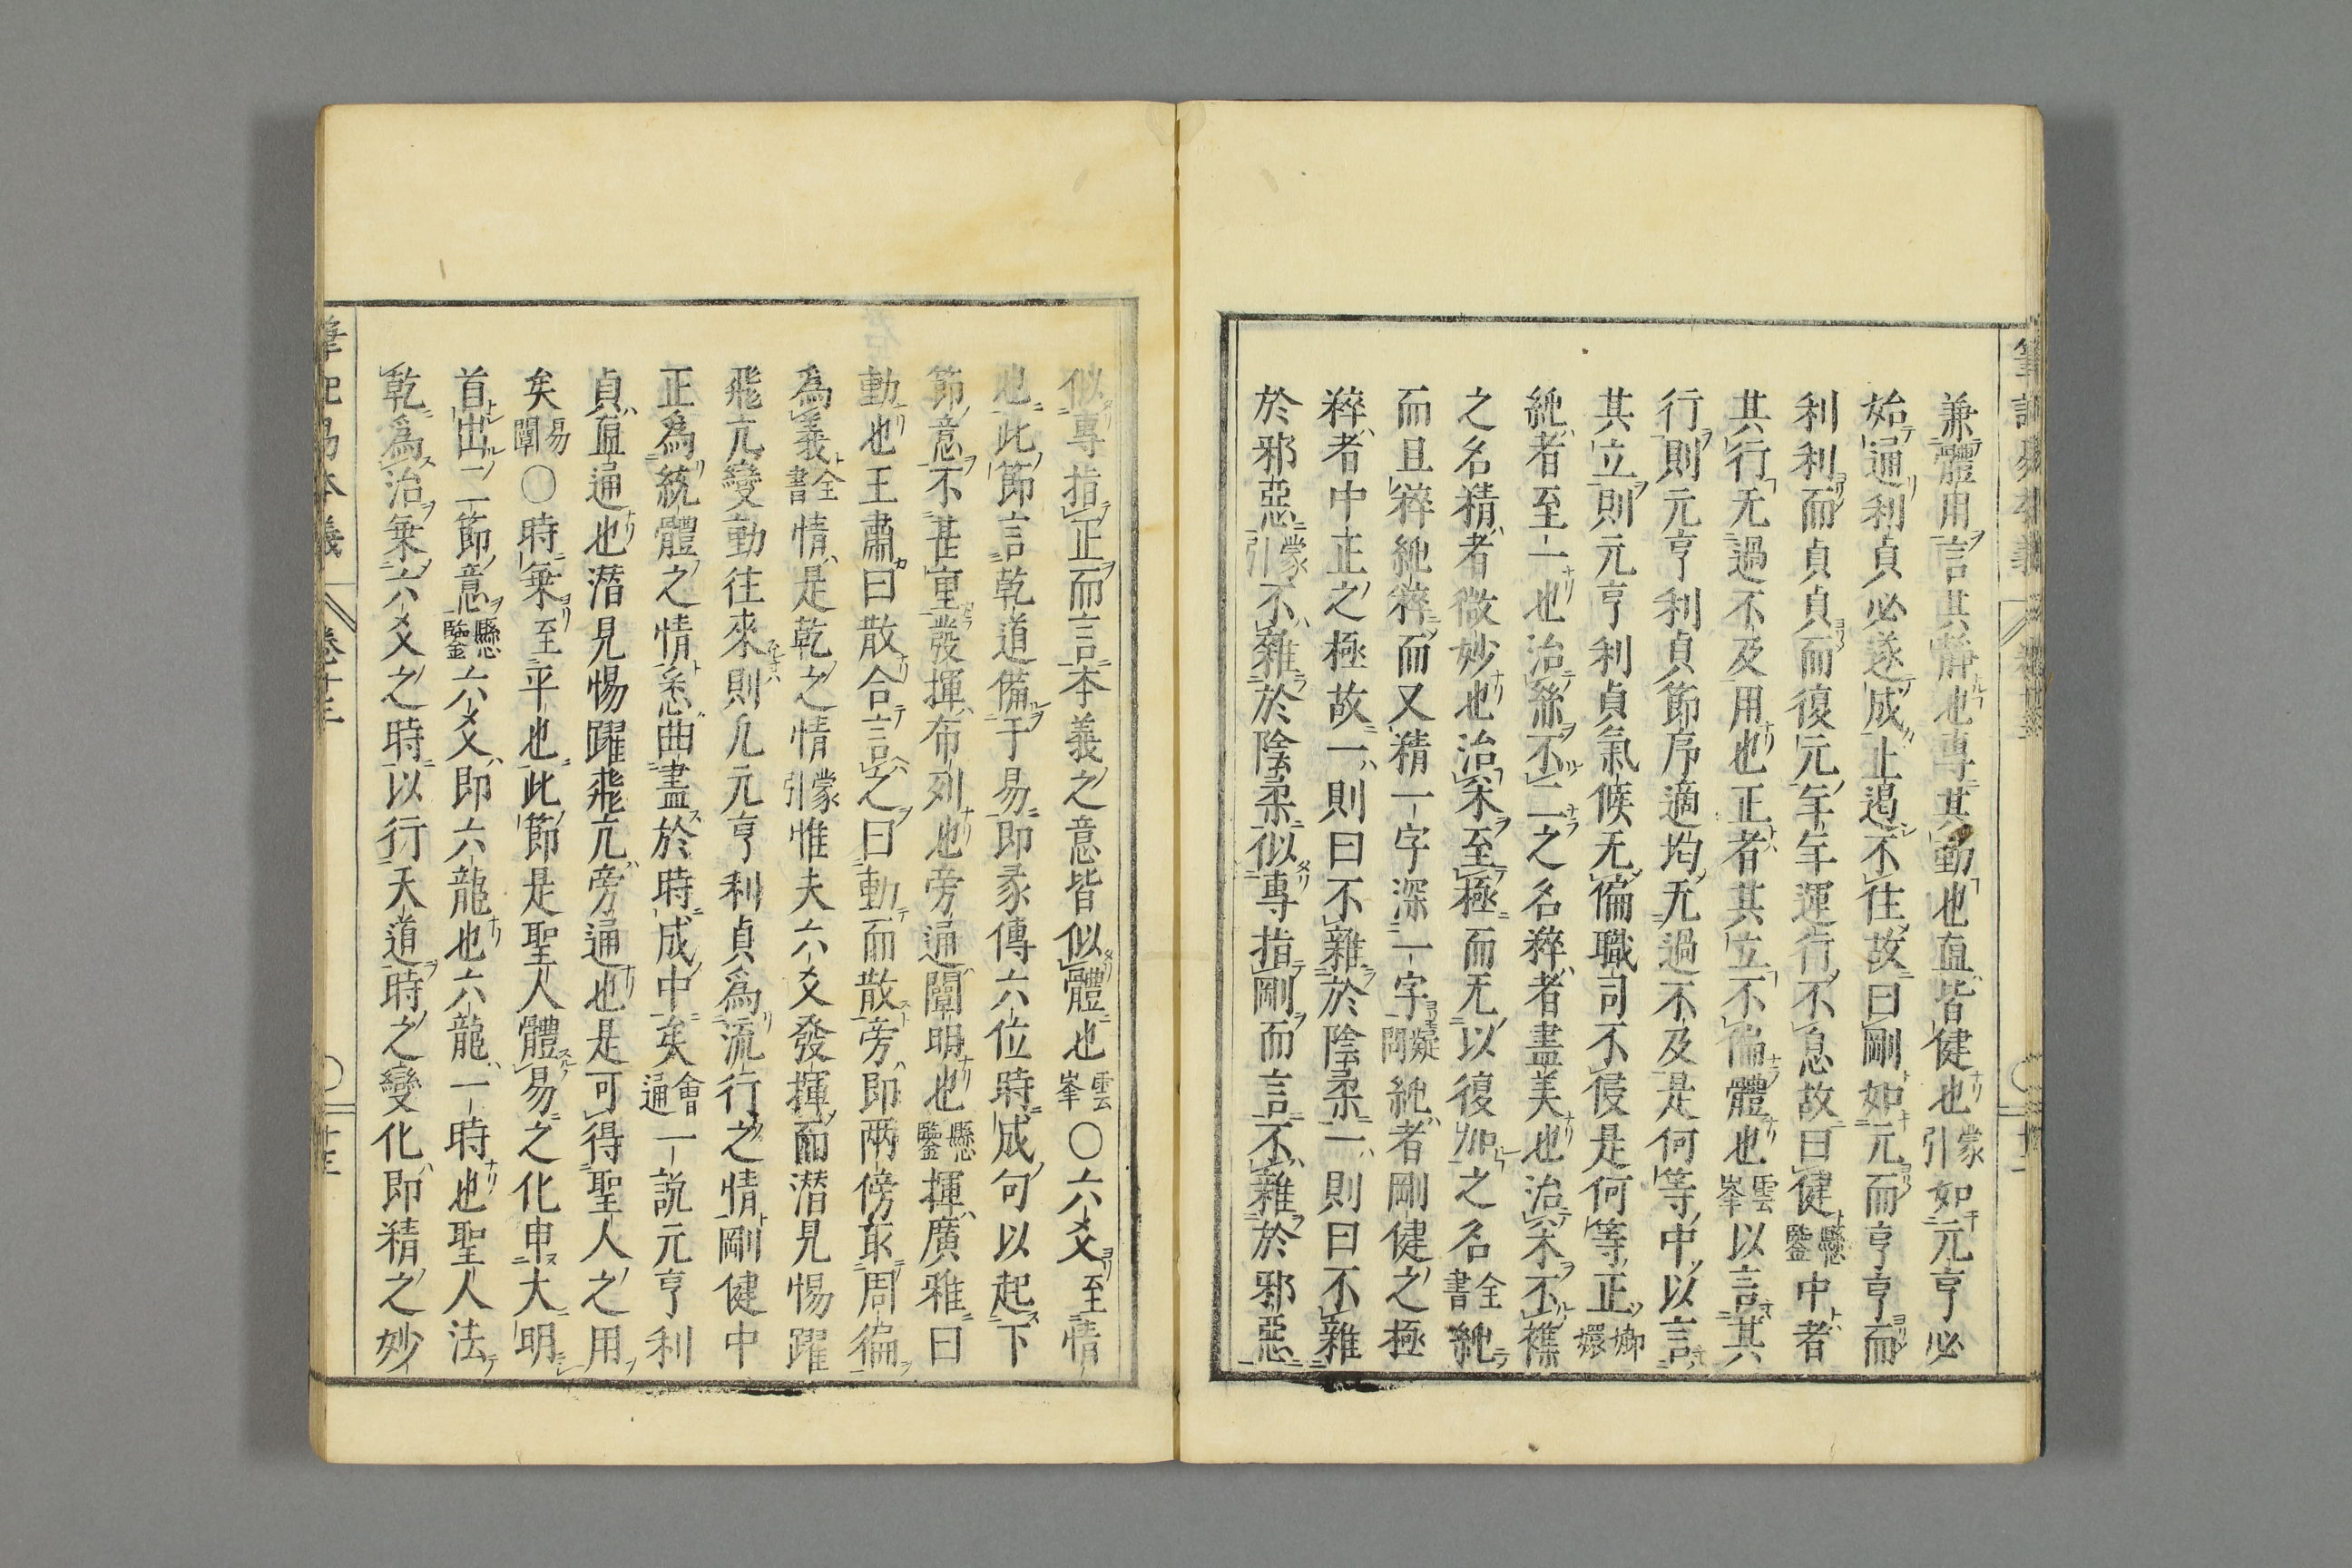 兼體用言其靜也專其動也直皆健也蒙引如元亨必
始通利貞必遂成止遏不住故曰剛如元而亨亨而
利利而貞貞而復元年年運行不息故曰健懸鑒中者
其行无過不及用也正者其立不偏體也雲峯以言其
行則元亨利貞節序適均无過不及是何等中以言
其立則元亨利貞氣候无偏職司不侵是何等正嫏嬛
純者至一也治絲不二之名粹者盡美也治米不襍
之名精者微妙也治米至極而无以復加之名全書純
而且粹純粹而又精一字深一字疑問純者剛健之極
粹者中正之極故一則曰不雜於陰柔一則曰不雜
於邪惡蒙引不雜於陰柔似專指剛而言不雜於邪惡
似專指正而言本義之意皆似體也雲峯〇六爻至情
也此節言乾道備于易即彖傳六位時成句以起下
節意不甚重發揮布列也旁通闡明也懸鑒揮廣雅曰
動也王肅曰散合言之曰動而散旁即兩傍取周徧
為義全書情是乾之情蒙引惟夫六爻發揮而潛見惕躍
飛亢變動往來則凡元亨利貞為流行之情剛健中
正為統體之情悉曲盡於時成中矣會通一說元亨利
貞直通也潛見惕躍飛亢旁通也是可得聖人之用
矣易闡〇時乗至平也此節是聖人體易之化申大明
首出二節意懸鑒六爻即六龍也六龍一時也聖人法
乾為治乗六爻之時以行天道時之變化即精之妙